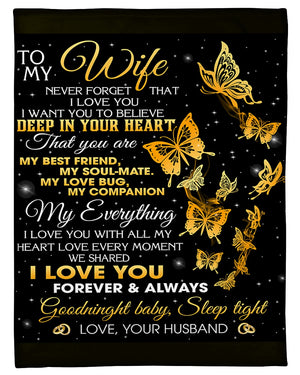 TO
MY Wife
NEVER FORGET THAT
I LOVE YOU
I WANT YOU TO BELIEVE
DEEP IN YOUR HEART
That you are
MY BEST FRIEND,
MY SOUL-MATE.
MY LOVE BUG,
MY COMPANION
My Everything
I LOVE YOU WITH ALL MY
HEART LOVE EVERY MOMENT
WE SHARED
I LOVE YOU
FOREVER & ALWAYS
Goodninght baby, Sleep tight
LOVE, YOUR HUSBAND